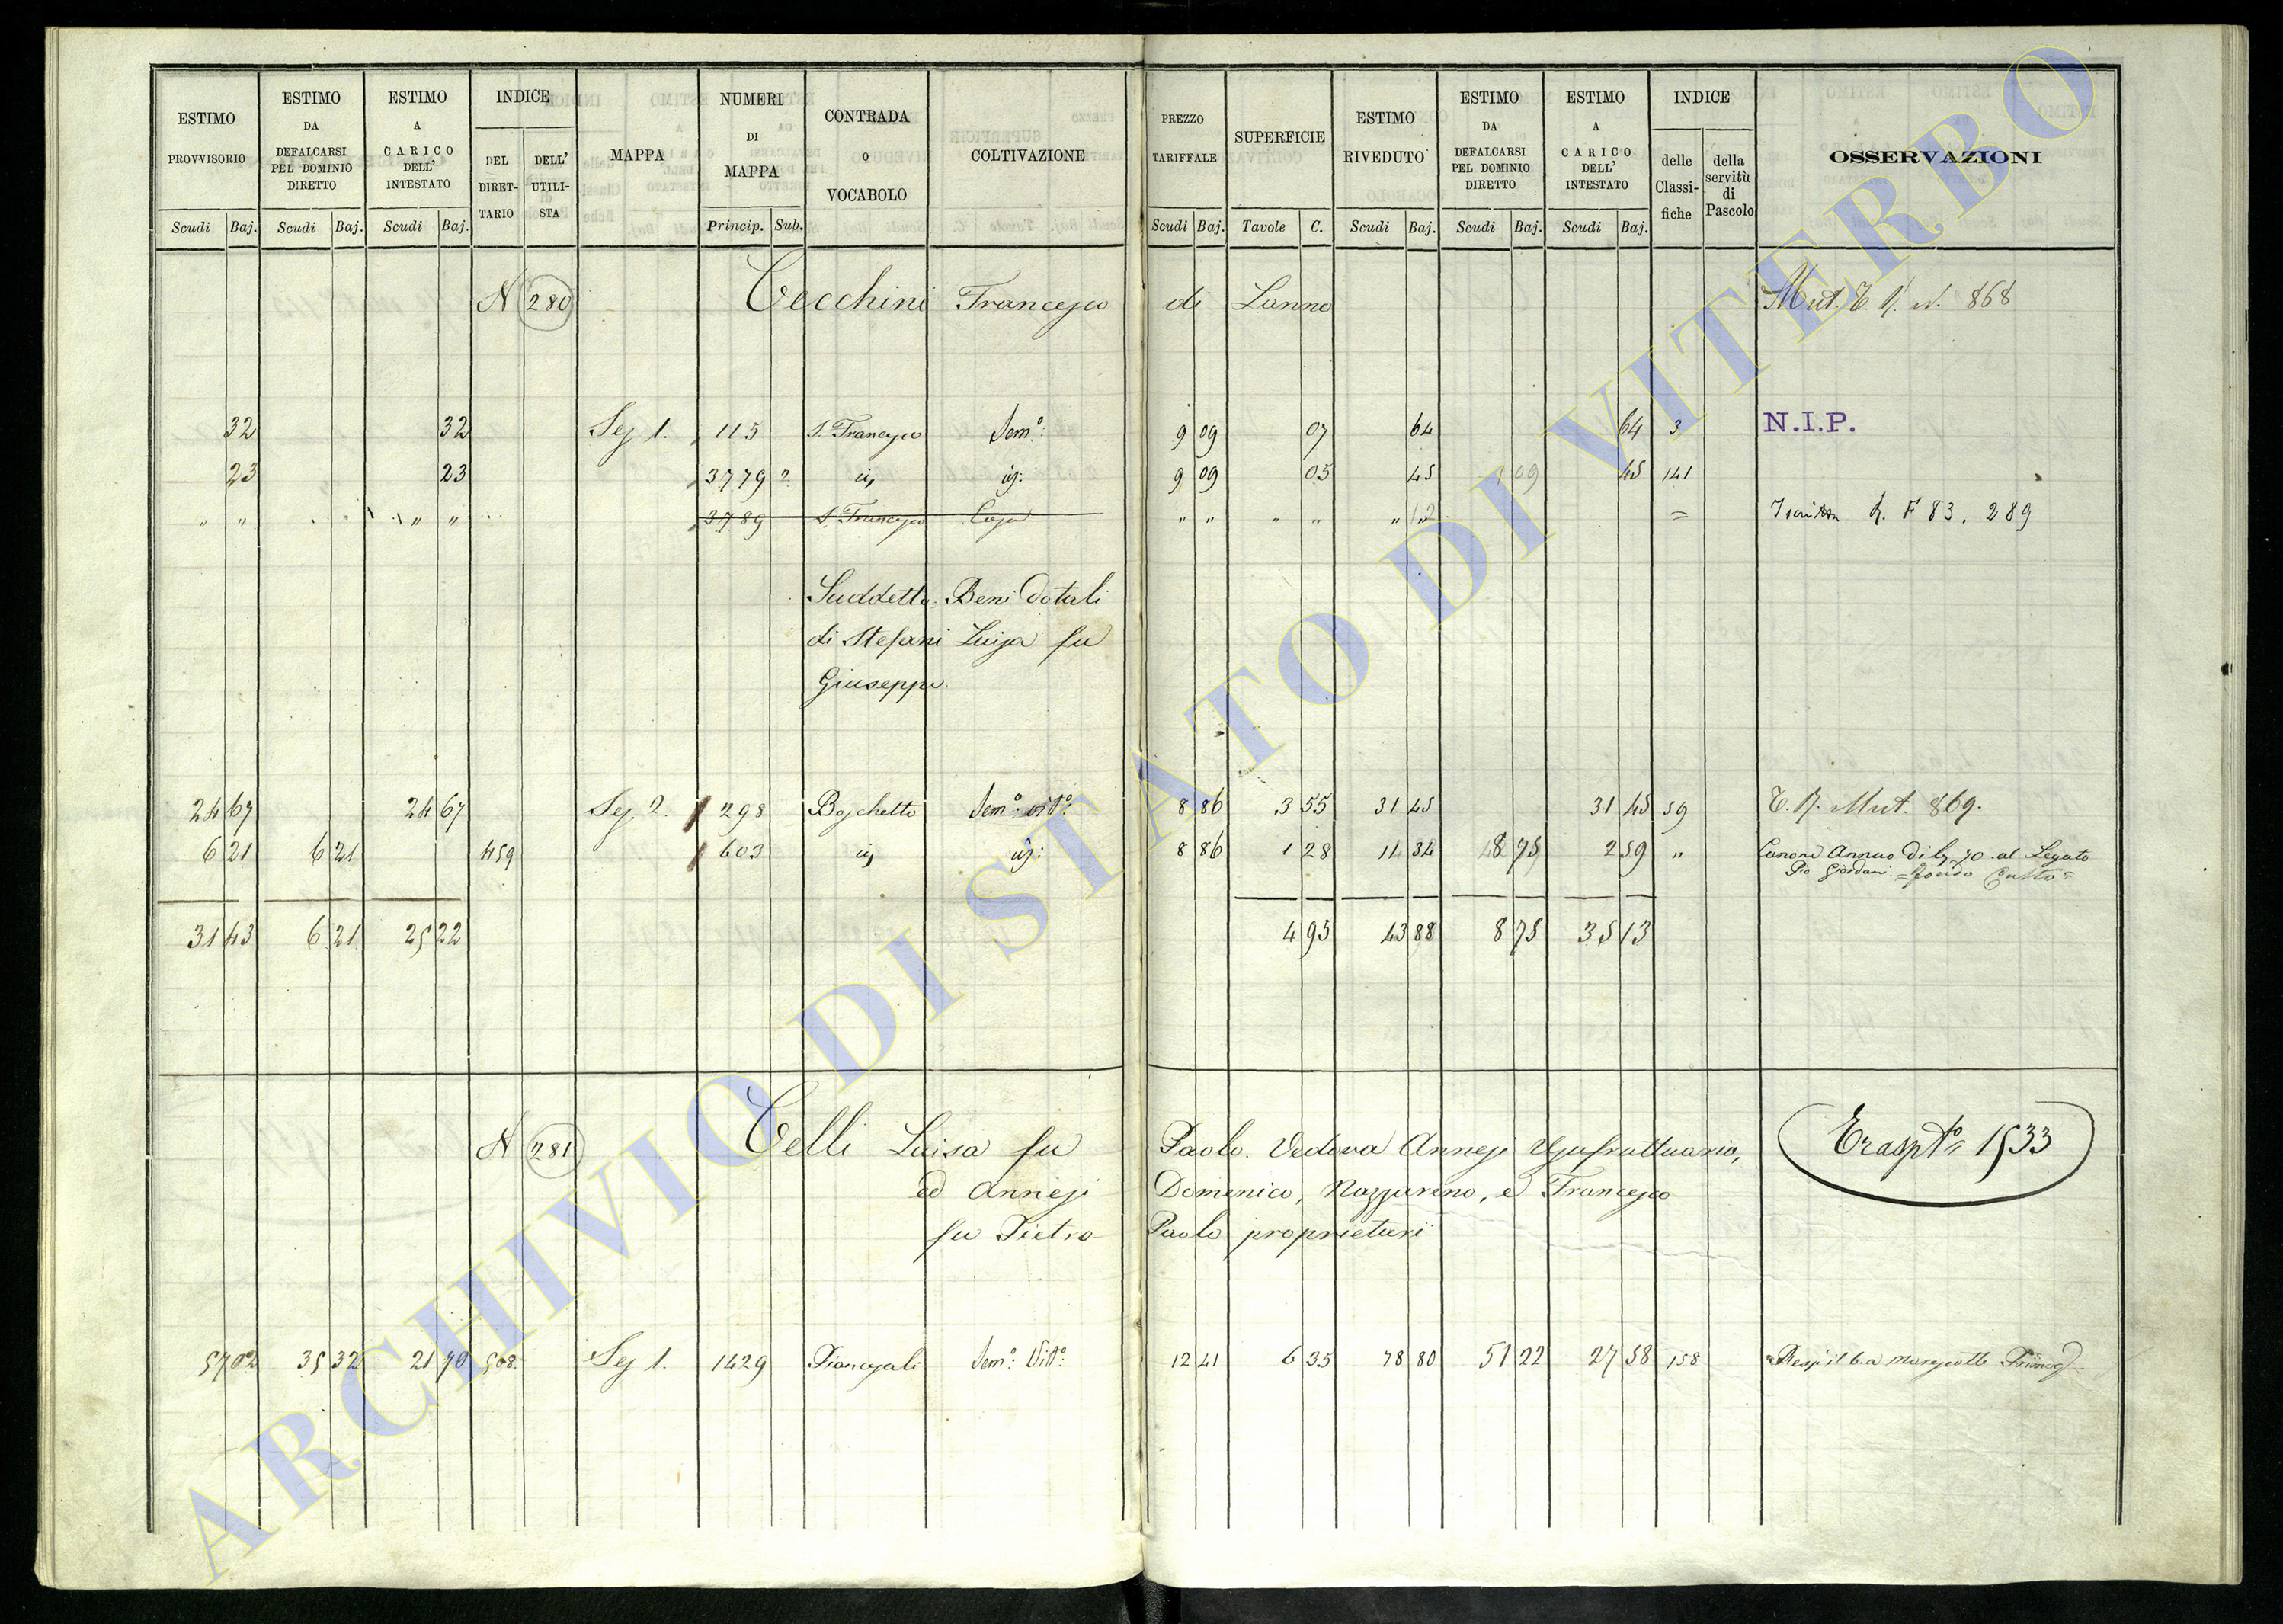 ESTIMO PROVVISORIO Scudi Baj. ESTIMO DA DEFALCARSI PEL DOMINIO DIRETTO Scudi Baj. ESTIMO A CARICO DELL' INTESTATO Scudi Baj. INDICE DEL DIRETTARIO DELL' UTILISTA MAPPA NUMERI DI MAPPA Princip. Sub. CONTRADA O VOCABOLO COLTIVAZIONE PREZZO TARIFFALE Scudi Baj. SUPERFICIE Tavole C. ESTIMO RIVEDUTO Scudi Baj. ESTIMO DA DEFALCARSI PEL DOMINIO DIRETTO Scudi Baj. ESTIMO A CARICO DELL' INTESTATO Scudi Baj. INDICE delle Classifiche della servitù di Pascolo OSSERVAZIONI
N 280 Cecchini Francesco di Mut. T. R. N. 868
32 32 Sez 1. 115 S. Francesco Sem.º 9 09 07 64 64 3 N.I.P.
23 23 3779 2 id. 9 09 05 45 45 141
" " " " 3789 S. Francesco Casa " " " " " = F 83. 289
Suddetto. Beni Dotali
di Stefani Luisa fu
Giuseppe.
24 67 24 67 Sez. 2. 298 Boschetto Sem.º vit.º 8 86 3 55 31 45 31 45 59 T. R. Mut. 869.
6 21 6 21 459 603 8 86 1 28 11 34 8 75 2 59 " Canone Annuo di al Legato
Pio Giordani
31 43 6 21 25 22 4 95 43 88 8 75 35 13
N 281 Celli Luisa fu Paolo. Vedova Annesi Usufruttuaria, Trasp.to 1533
ed Annesi Domenico, Nazzareno, e Francesco
fu Pietro Paolo proprietari
57 02 35 32 21 70 508. Sez 1. 1429 Piancasali Sem.º Vit.º 12 41 6 35 78 80 51 22 27 58 158
ARCHIVIO DI STATO DI VITERBO